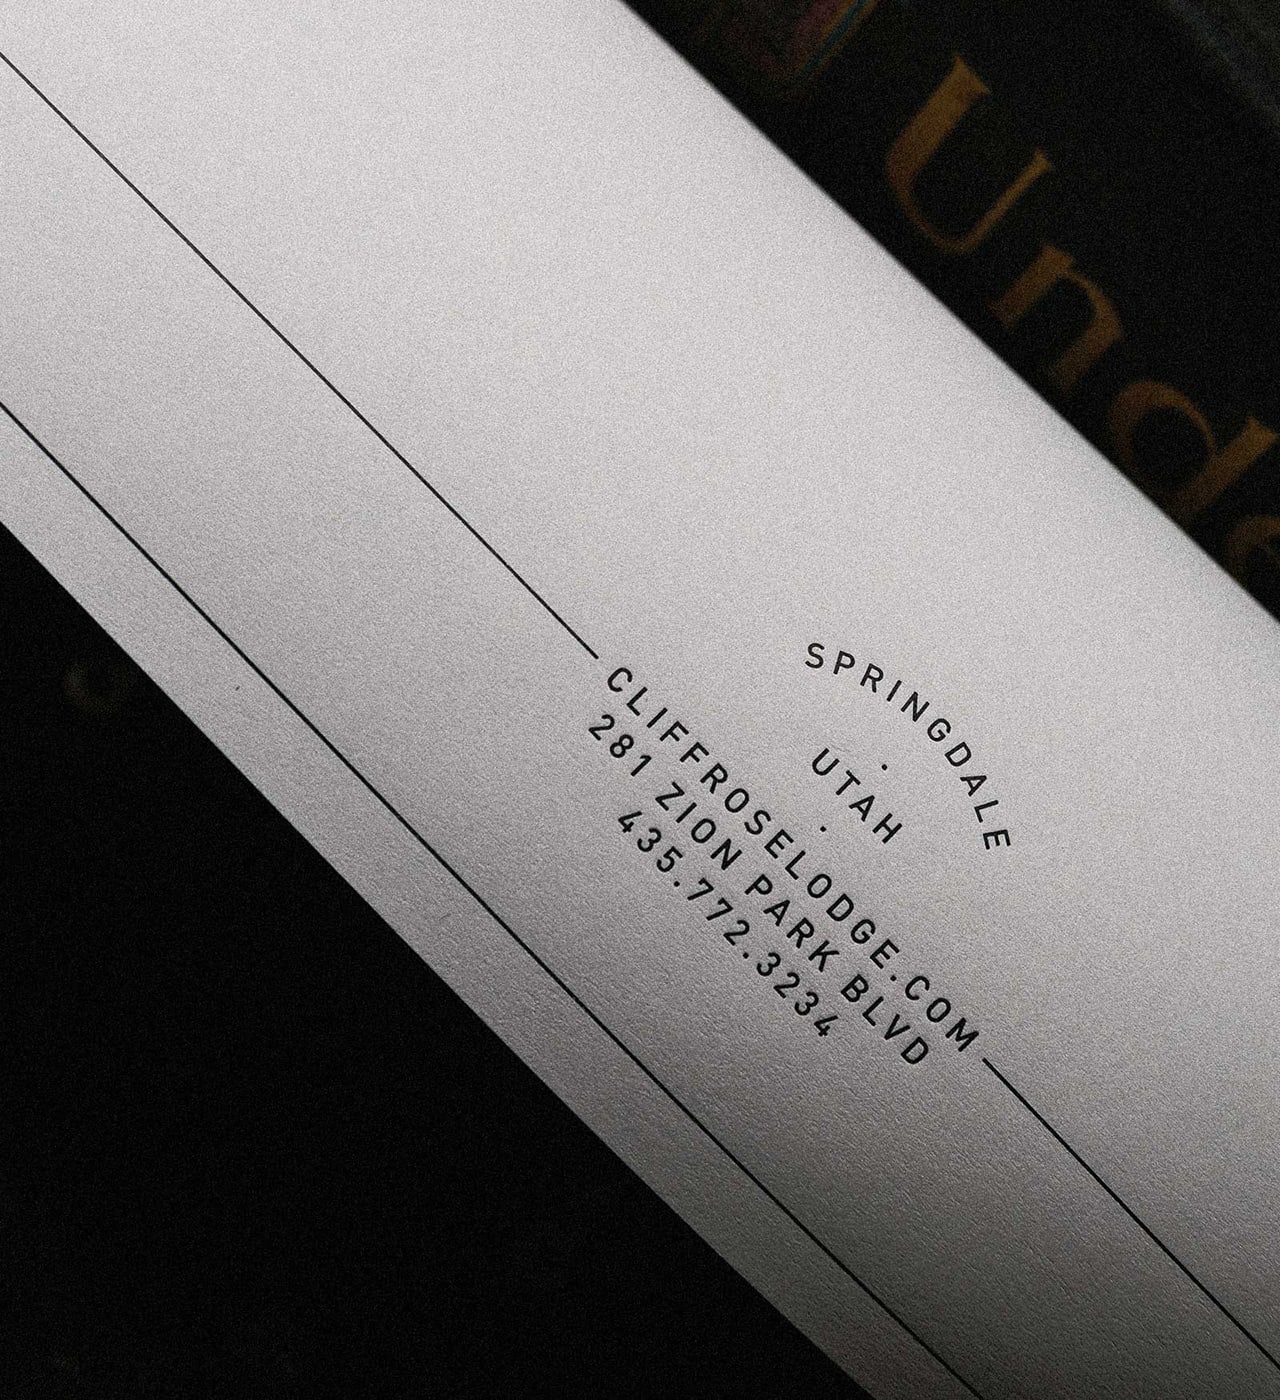 Unde
SPRINGDALE
UTAH
CLIFFROSELODGE.COM
281 ZION PARK BLVD
435.772.3234